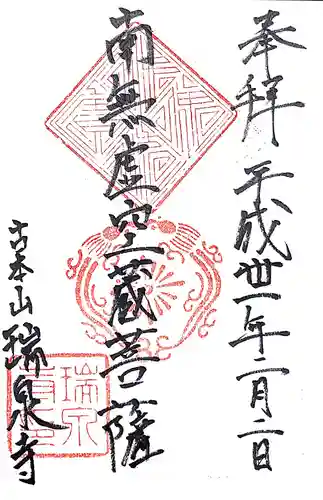 奉拝 平成丗一年二月二日
南無虚空蔵菩薩
古本山 瑞泉寺